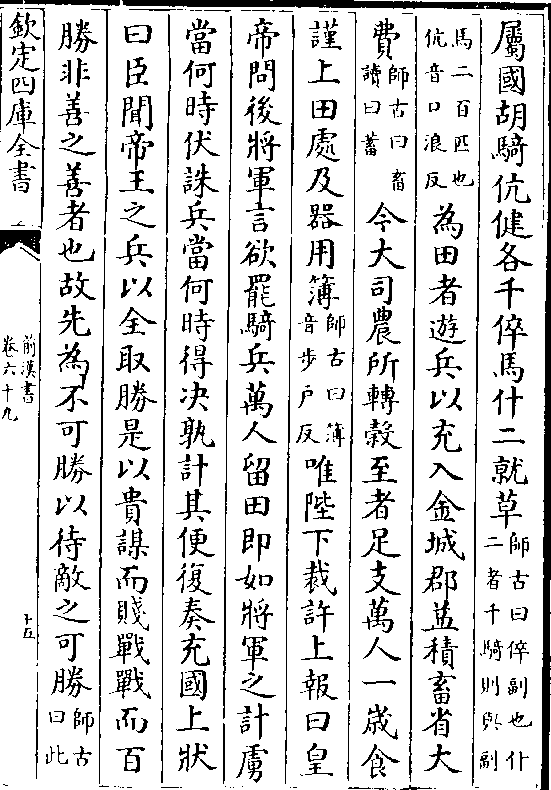 屬國胡騎伉健各千倅馬什二就草師古曰倅副也什二者千騎則與副
馬二百匹也伉音口浪反為田者遊兵以充入金城郡益積畜省大
費師古曰畜讀曰蓄今大司農所轉榖至者足支萬人一歳食
謹上田處及器用簿師古曰簿音步戶反唯陛下裁許上報曰皇
帝問後將軍言欲罷騎兵萬人留田即如將軍之計虜
當何時伏誅兵當何時得決孰計其便復奏充國上狀
曰臣聞帝王之兵以全取勝是以貴謀而賤戰戰而百
勝非善之善者也故先為不可勝以待敵之可勝師古曰此
欽定四庫全書
前漢書
卷六十九
十五